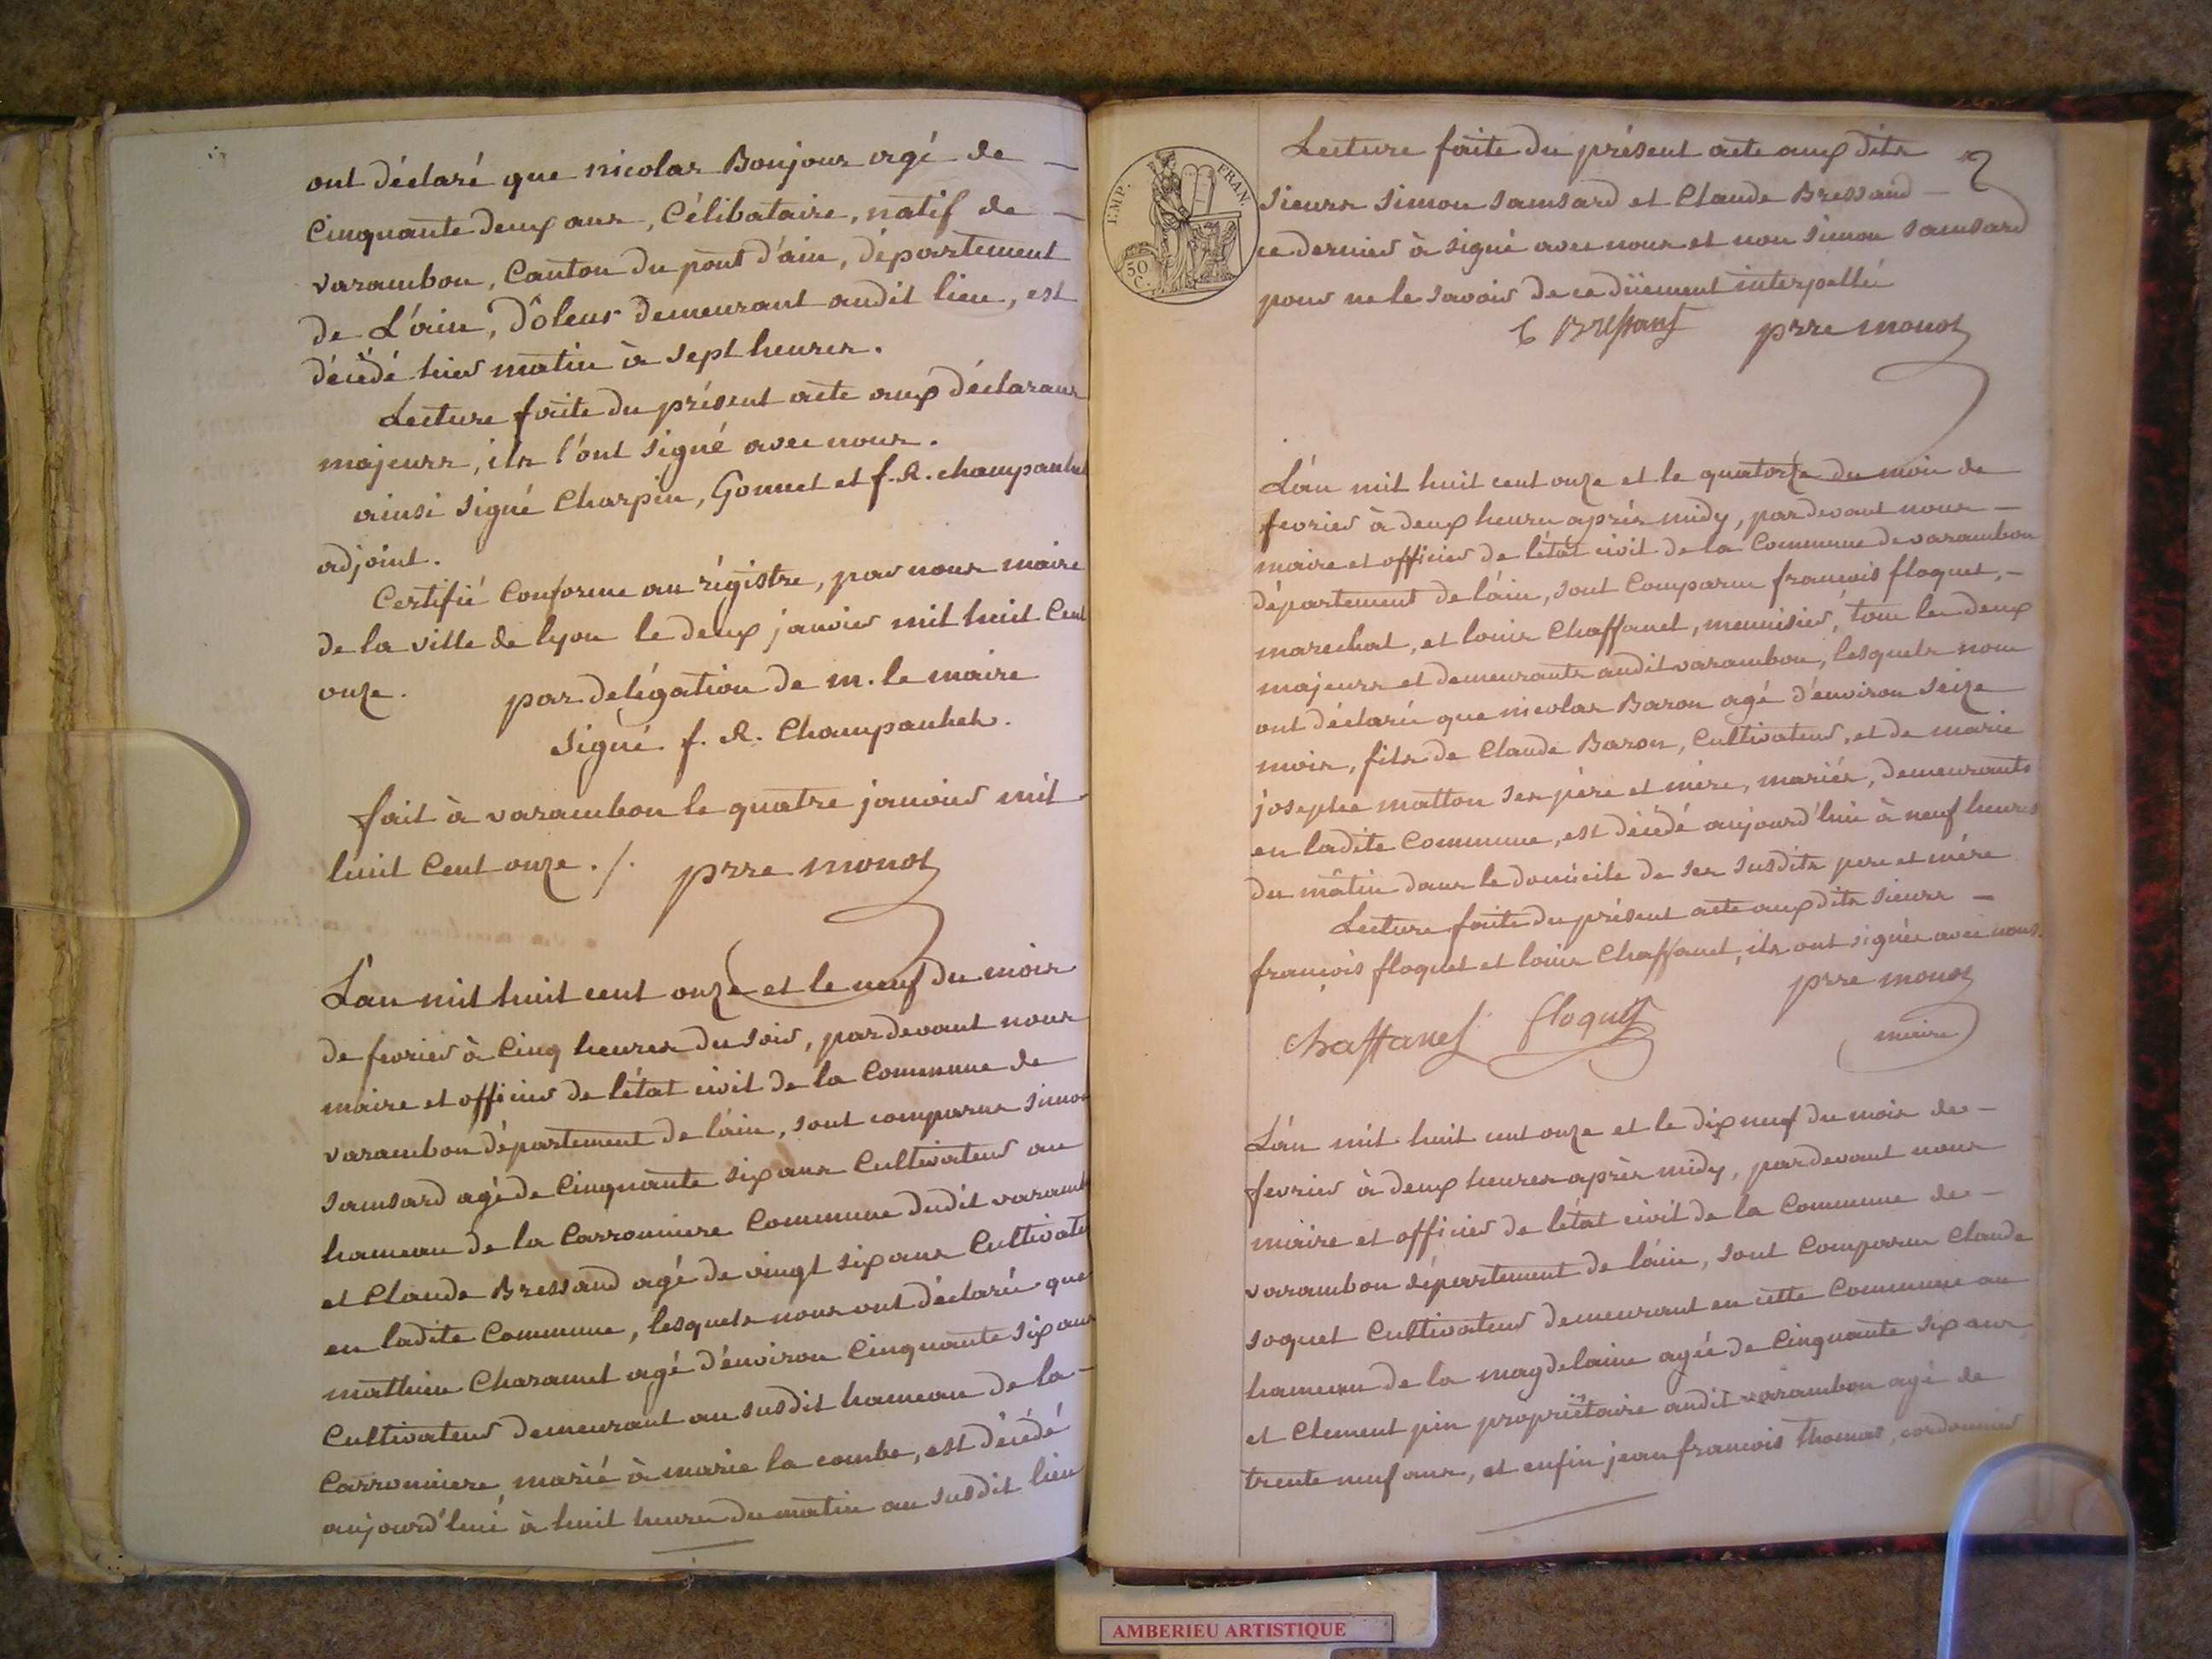 ont déclaré que nicolas Bonjour agé de -
Cinquante deux ans, Célibataire, natif de -
varambon, Canton du pont d'ain, département
de L'ain, Dôleur demeurant audit lieu, est
décédé hier matin à sept heures.
Lecture faite du présent acte aux déclarans
majeurs, ils l'ont signé avec nous.
ainsi signé Charpin, Gonnet et f. R. champanhet
adjoint.
Certifié Conforme au régistre, par nous maire
de la ville de lyon le deux janvier mil huit Cent
onze. par delégation de m. le maire
Signé f. R. Champanhet.
fait à varambon le quatre janvier mil
huit Cent onze ./. prre monot
L'an mil huit cent onze et le neuf du mois
de fevrier à Cinq heures du soir, pardevant nous
maire et officier de l'état civil de la Commune de
varambon département de l'ain, sont comparus simon
samsard agé de Cinquante six ans Cultivateur au
hameau de la Carronniere Commune dudit varamb
et Claude Bressand agé de vingt six ans Cultivate
en ladite Commune, lesquels nous ont déclaré que
mathieu Charamet agé d'environ Cinquante six ans
Cultivateur demeurant au susdit hameau de la -
Carronniere marié à marie la combe, est décédé
aujourd'hui à huit heures du matin au susdit lieu
2
IMP. FRAN.
50 C.
Lecture faite du présent acte aux dits
Sieurs Simon Samsard et Claude Bressand -
ce dernier à signé avec nous et non Simon Samsard
pour ne le savoir de ce düement interpellé
C Bressant prre monot
L'an mil huit cent onze et le quatorze du mois de
fevrier à deux heures après midy, pardevant nous -
maire et officier de l'état civil de la Commune de varambon
département de l'ain, sont Comparus francois floquet, -
marechal, et louis Chaffanet, menuisier, tous les deux
majeurs et demeurants audit varambon, lesquels nous
ont déclaré que nicolas Baron agé d'environ Seize
mois, fils de Claude Baron, Cultivateur, et de marie
josephe matton ses père et mère, mariés, demeurants
en ladite Commune, est décédé aujourd'hui à neuf heures
du mâtin dans le domicile de ses susdits pere et mére
Lecture faite du présent acte aux dits sieurs -
françois floquet et louis Chaffanet, ils ont signés avec nous.
prre monot
Chaffanet floquet
maire
L'an mil huit cent onze et le dix neuf du mois de -
fevrier à deux heures après midy, pardevant nous
maire et officier de l'état civil de la Commune de -
varambon département de l'ain, sont Comparus Claude
soquet Cultivateur demeurant en cette Commune au
hameau de la magdelaine agée de Cinquante six ans
et Clement pin propriétaire audit varambon agé de
trente neuf ans, et enfin jean francois thomas, cordonnier
AMBERIEU ARTISTIQUE